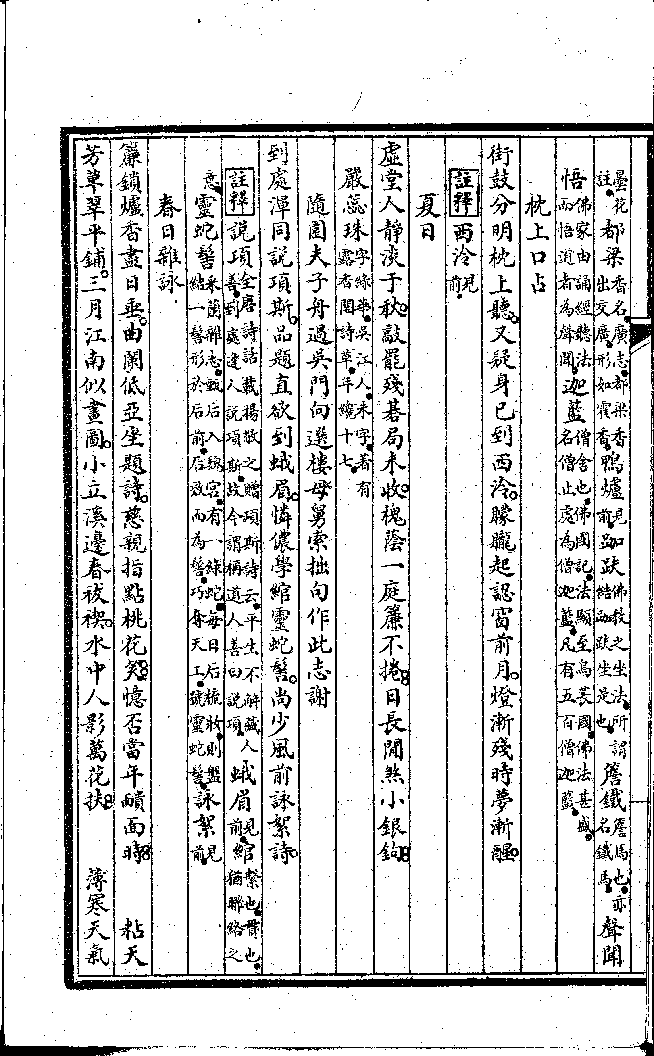 曇花註。都梁香名。廣志。都梁香出交廣。形如霍香。鴨爐見前。跏趺佛教之坐法。所謂結跏趺坐是也。簷鐵簷馬也。亦名鐵馬。聲聞
悟佛家由誦經聽法而悟道者為聲聞。迦藍僧舍也。佛國記。法顯至烏萇國佛法甚盛。名僧止處為僧迦藍。凡有五百僧迦藍。
枕上口占
街鼓分明枕上聽。又疑身已到西泠。朦朧起認窗前月。燈漸殘時夢漸醒。
註釋 西泠見前。
夏日
虛堂人靜淡于秋。敲罷殘碁局未收。槐蔭一庭簾不捲。日長閒煞小銀鉤。
嚴蕊珠字綠華。吳江人。未字。著有露香閣詩草。年纔十七。
隨園夫子舟過吳門向選樓母舅索拙句作此志謝
到處渾同說項斯。品題直欲到蛾眉。憐儂學綰靈蛇髻。尚少風前詠絮詩。
註釋 說項全唐詩話載楊敬之贈項斯詩云。平生不解藏人善。到處逢人說項斯。故今謂稱道人善曰說項。蛾眉見前。綰繫也。貫也。猶聯絡之
意。靈蛇髻采蘭雜志。甄后入魏宮。有一綠蛇。每日后梳妝。則盤結一髻形於后前。后效而為髻。巧奪天工。號靈蛇髻。詠絮見前。
春日雜詠
簾鎖爐香盡日垂。曲闌低亞坐題詩。慈親指點桃花笑。憶否當年靧面時。 粘天
芳草翠平鋪。三月江南似畫圖。小立溪邊春祓禊。水中人影萬花扶。 薄寒天氣